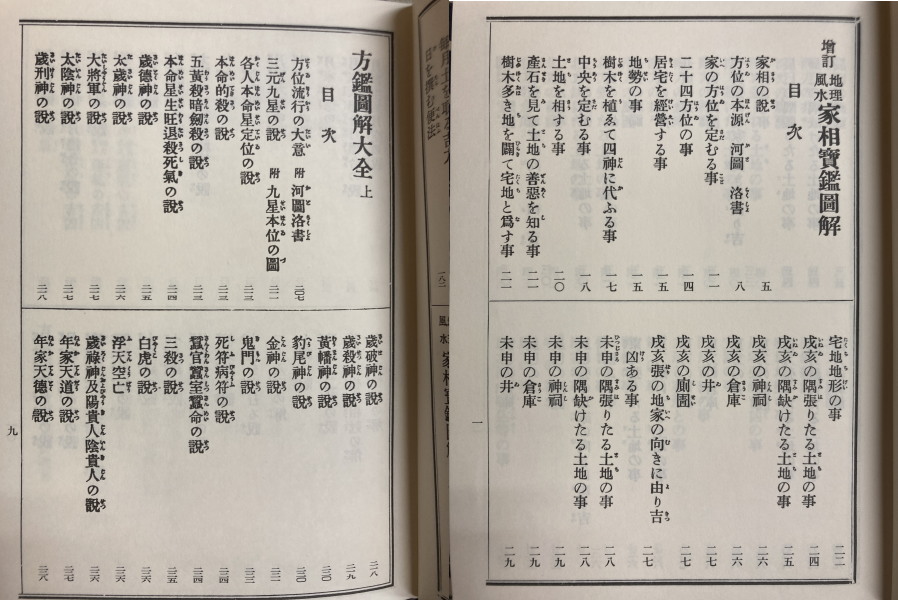 増訂 地理風水 家相寶鑑圖解
目次
家相の說 五
方位の本源 河圖 洛書 八
家の方位を定むる事 一一
二十四方位の事 一四
居宅を經營する事 一五
地勢の事 一五
樹木を植ゑて四神に代ふる事 一七
中央を定むる事 一八
土地を相する事 二〇
產石を見て土地の善惡を知る事 二一
樹木多き地を闢て宅地と爲す事 二一
宅地地形の事 二二
戌亥の隅張りたる土地の事 二四
戌亥の隅缺けたる土地の事 二五
戌亥の神祠 二六
戌亥の倉庫 二六
戌亥の井 二七
戌亥の廁圊 二七
戌亥張の地家の向きに由り吉凶ある事 二七
未申の隅張りたる土地の事 二八
未申の隅缺けたる土地の事 二八
未申の神祠 二九
未申の倉庫 二九
未申の井 二九
一
方鑑圖解大全 上
目次
方位流行の大意 附 河圖洛書 二〇七
三元九星の說 附 九星本位の圖 二一一
各人本命星定位の說
本命的殺の說
五黃殺暗劍殺の說
本命星生旺退殺死氣の說 二一四
歲德神の說 二一五
太歲神の說 二一六
大將軍の說 二一七
太陰神の說 二一七
歲刑神の說 二一八
歲破神の說 二一八
歲殺神の說 二一九
黃幡神の說 二二〇
豹尾神の說 二二〇
金神の說
鬼門の說
死符病符の說
蠶官蠶室蠶命の說
三殺の說
白虎の說
浮天空亡
歲祿神及陽貴人陰貴人の說
年家天道の說
年家天德の說
九